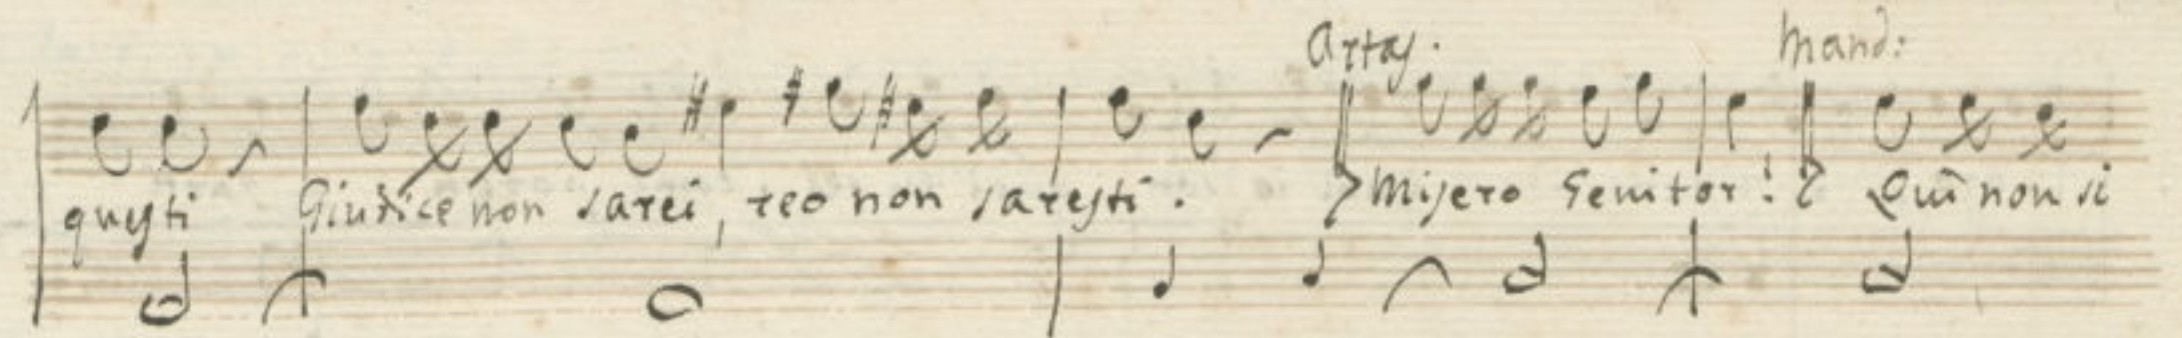 Artas. Mand:
questi Giudice non sarei, reo non saresti. Misero Genitor! Qui non si